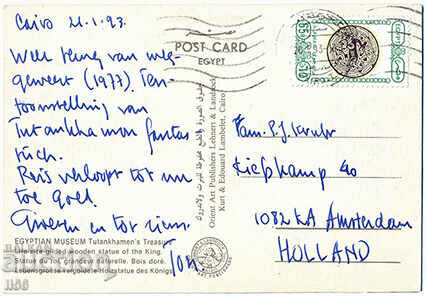 Cairo 21.1.93.
Weer terug van weg-
geweest (1977). Ten-
toonstelling van
Tutankhamon fantas
tisch.
Reis verloopt tot nu
toe goed.
Groeten en tot ziens
Ton.
POST CARD
EGYPT
Fam. P.J.
40
1082 KA Amsterdam
HOLLAND
Orient Art Publishers Lehnert & Landrock
Kurt & Edouard Lambelet, Cairo
EGYPTIAN MUSEUM Tutankhamen's Treasure
Life-size gilded wooden statue of the King.
Statue du roi, grandeur naturelle. Bois doré.
Lebensgrosse vergoldete Holzstatue des Königs.
1156